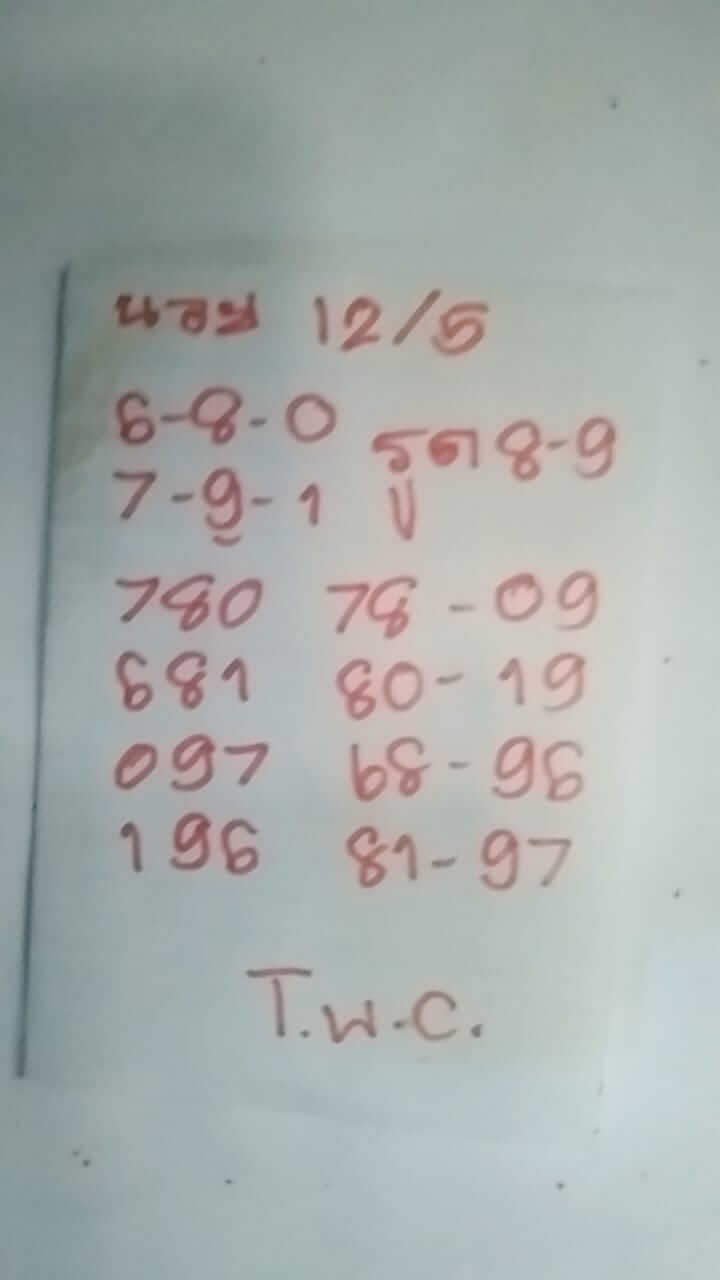 นอย 12/5
6-8-0 รูด 8-9
7-9-1
780 78-09
681 80-19
097 68-96
196 81-97
T.W.C.